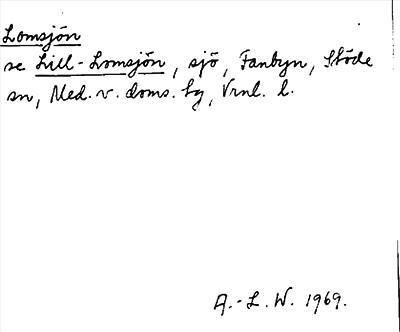 Lomsjön
se Lill-Lomsjön, sjö, Fanbyn, Stöde
sn, Med. v. doms. tg, Vrnl. l.
A.-L. W. 1969.